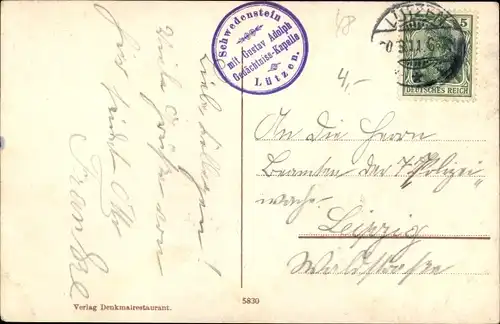 Schwedenstein
mit Gustav Adolph
Gedächtniss-Kapelle
Lützen.
LÜTZEN
5
DEUTSCHES REICH
4,-
Liebe Kollegen!
Viele Grüße von
hier sendet Otto
Franke
An die Herrn
Beamten der 7. Polizei
wache
Leipzig
Waldstraße
Verlag Denkmalrestaurant.
5830